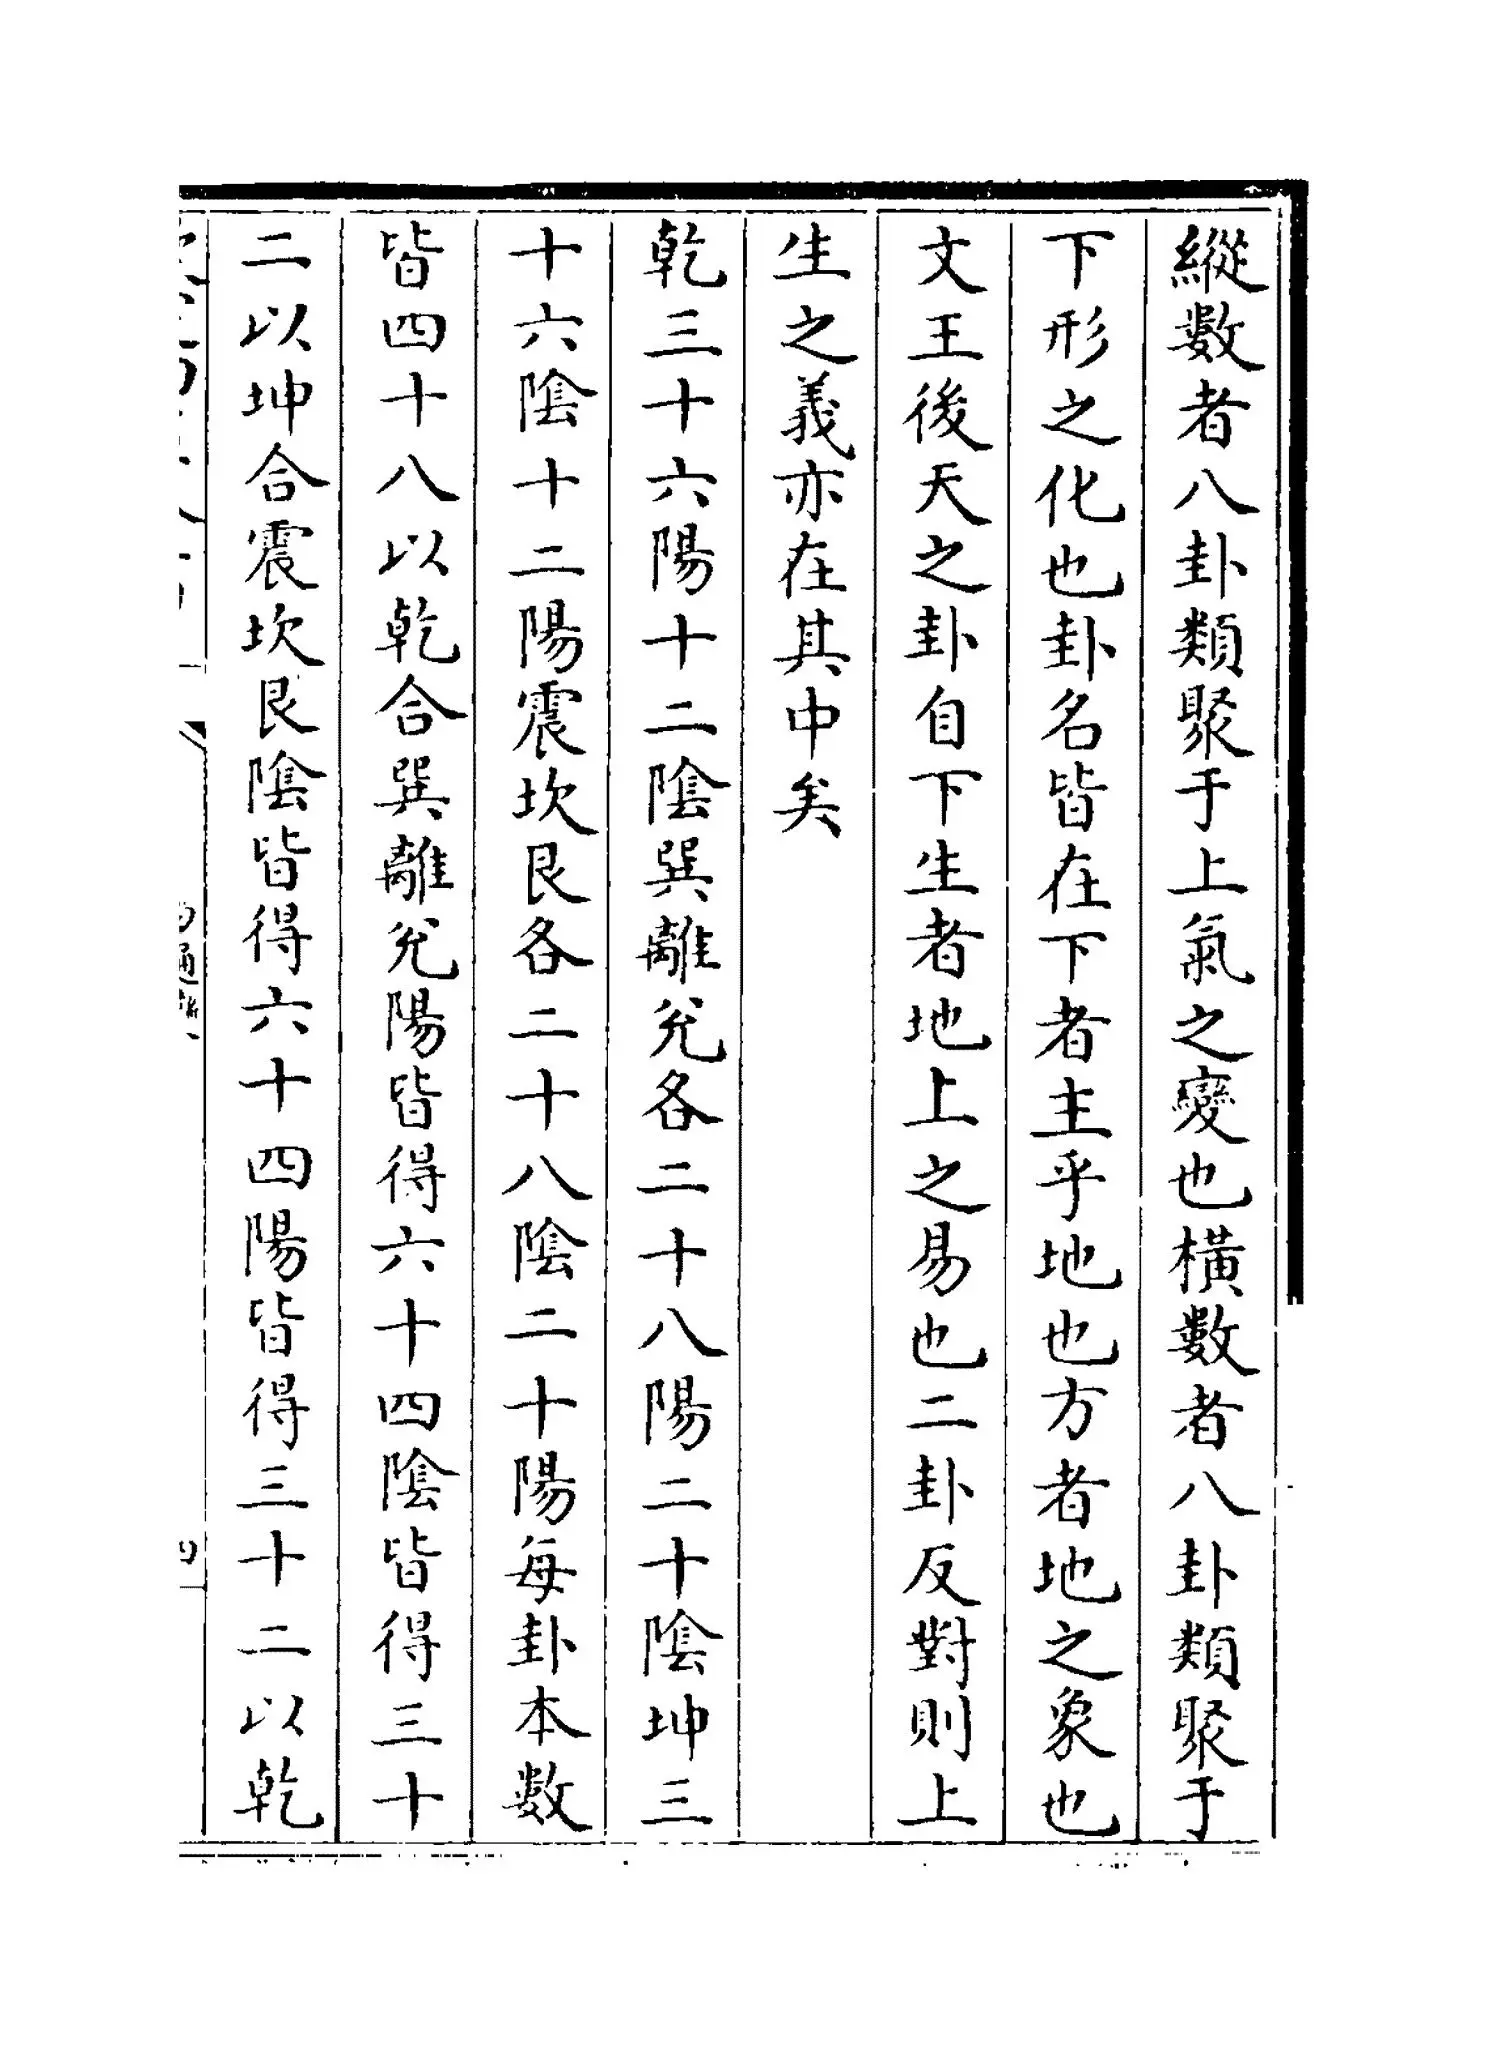 縱數者八卦類聚于上氣之變也橫數者八卦類聚于
下形之化也卦名皆在下者主乎地也方者地之象也
文王後天之卦自下生者地上之易也二卦反對則上
生之義亦在其中矣
乾三十六陽十二陰巽離兊各二十八陽二十陰坤三
十六陰十二陽震坎艮各二十八陰二十陽每卦本數
皆四十八以乾合巽離兊陽皆得六十四陰皆得三十
二以坤合震坎艮陰皆得六十四陽皆得三十二以乾